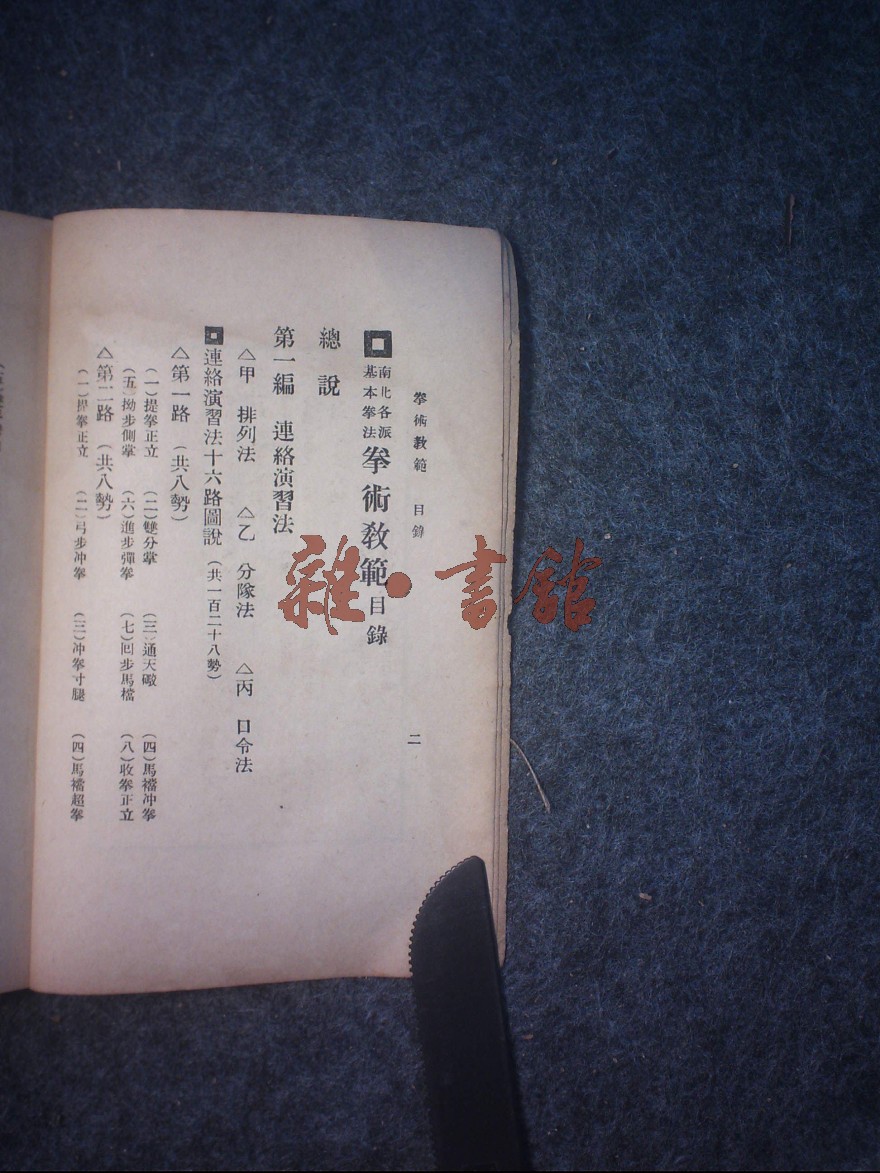 拳術教範　目錄
二
南北各派
基本拳法
拳術教範目錄
總說
第一編　連絡演習法
△甲　排列法　△乙　分隊法　△丙　口令法
連絡演習法十六路圖說（共一百二十八勢）
△第一路　（共八勢）
（一）提拳正立　（二）雙分掌　（三）通天礮　（四）馬襠冲拳
（五）拗步側掌　（六）進步彈拳　（七）囘步馬檔　（八）收拳正立
△第二路　（共八勢）
（一）提拳正立　（二）弓步冲拳　（三）冲拳寸腿　（四）馬襠超拳
雜·書館